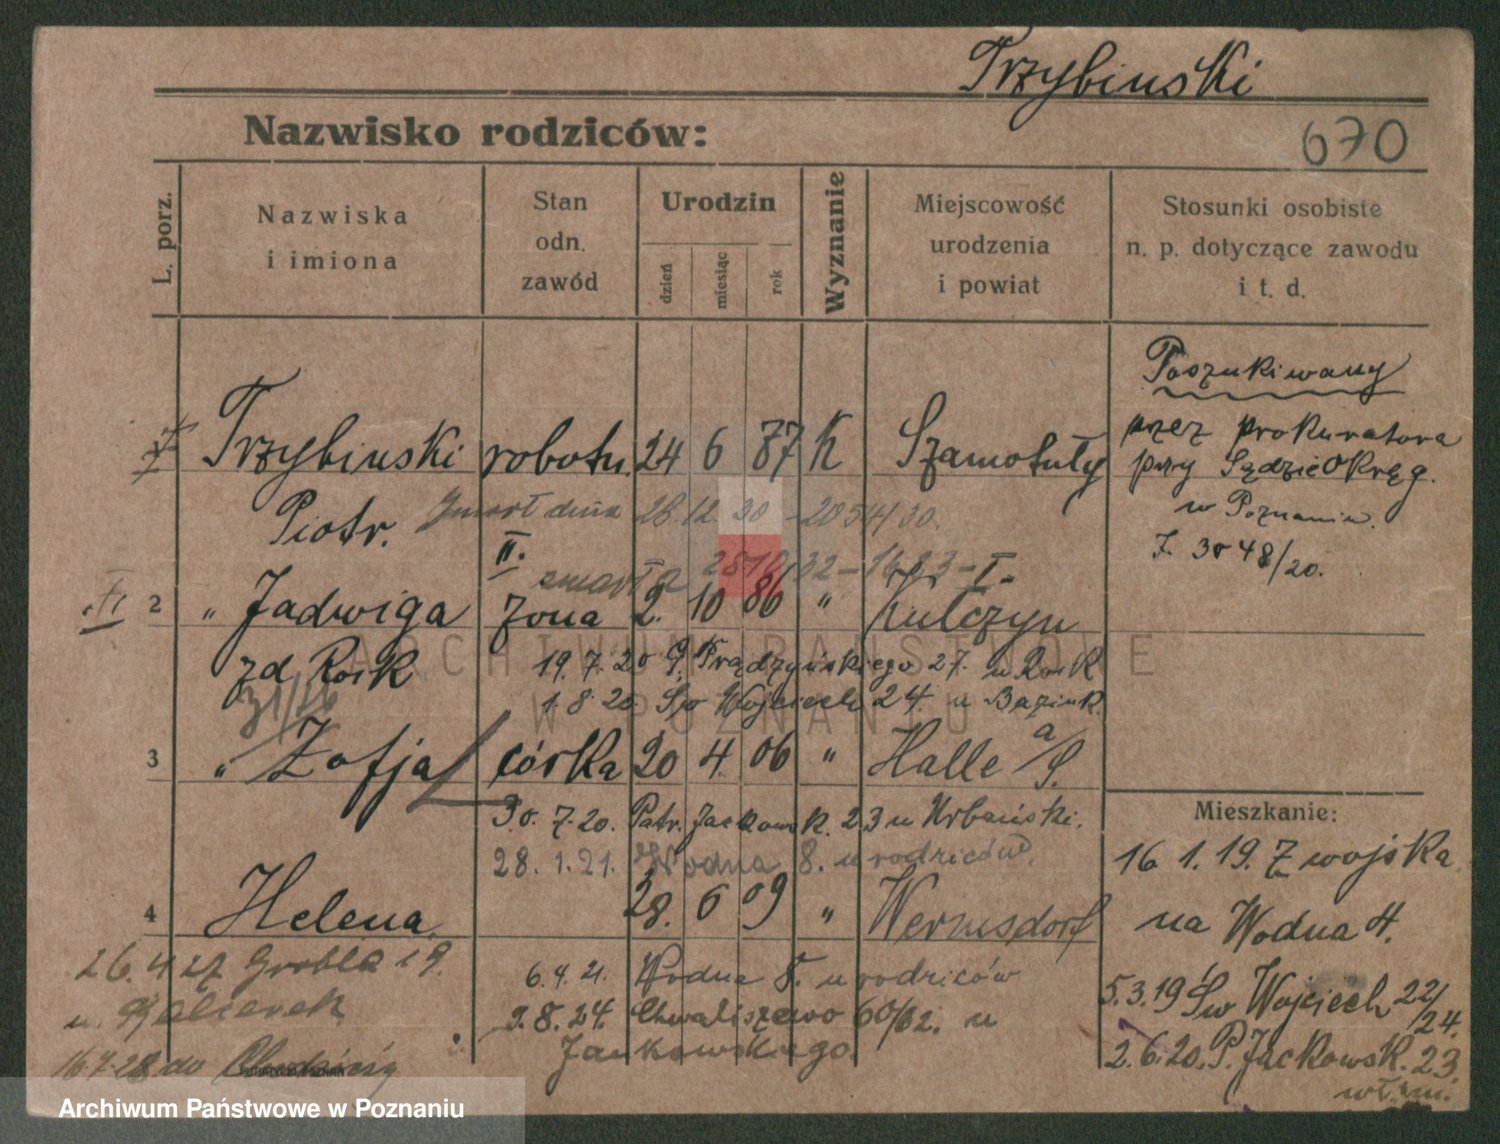 Trzybinski
Nazwisko rodziców:
670
L. porz.
Nazwiska i imiona
Stan odn. zawód
Urodzin
dzień
miesiąc
rok
Wyznanie
Miejscowość urodzenia i powiat
Stosunki osobiste n. p. dotyczące zawodu i t. d.
Poszukiwany
przez prokuratora
przy Sądzie Okręg.
w Poznaniu.
3048/20.
Trzybinski robotn. 24 6 87 K Szamotuły
Piotr. Zmarł dnia 28.12.30 - 2054/30.
II. zmarła 32 - 1623 - I.
2 " Jadwiga żona 2. 10 86 " Kulczyn
zd Rosk 19.7.20 G. Prądzyńskiego 27. u Rosk
1.8.20. Św Wojciech 24. u
3 " Zofja córka 20 4. 06 " Halle a/S.
30. 7.20. Patr. Jackowsk. 23 u Urbański.
28. 1.21. Wodna 8. u rodziców.
4 Helena 28. 6 09 " Wernsdorf
26.4 27 Grobla 19.
u.
6.4.21. Wodna 8. u rodziców
9.8.24. Chwaliszewo 60/62. u
Jankowskiego.
16.7.28 do
Mieszkanie:
16 1.19. Z wojska
na Wodna 4.
5.3.19 Św Wojciech 22/24.
2.6.20. P. Jackowsk. 23.
ARCHIWUM PAŃSTWOWE
W POZNANIU
Archiwum Państwowe w Poznaniu